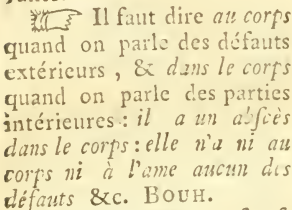 ☞ Il faut dire au corps
quand on parle des défauts
extérieurs, & dans le corps
quand on parle des parties
intérieures : il a un abscès
dans le corps : elle n'a ni au
corps ni à l'ame aucun des
défauts &c. BOUH.